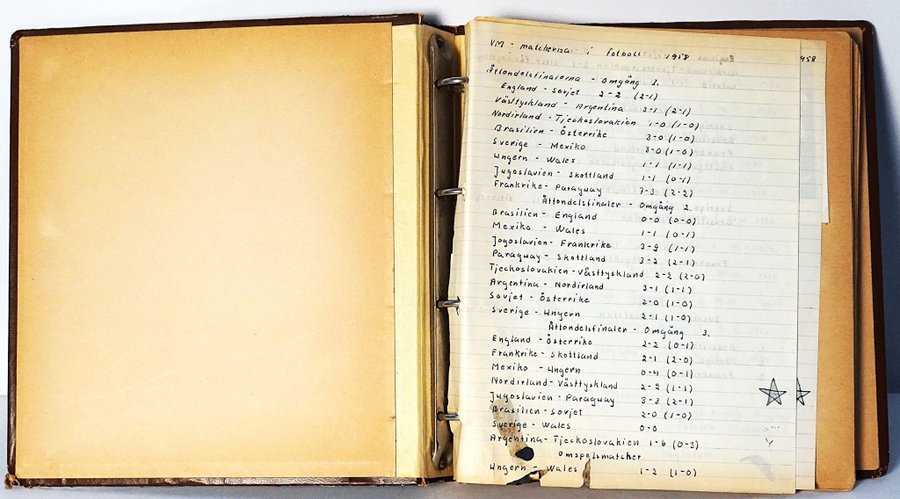 VM - matcherna i fotboll 1958
958
Åttondelsfinalerna - Omgång 1.
England - Sovjet 2-2 (2-1)
Västtyskland - Argentina 3-1 (2-1)
Nordirland - Tjeckoslovakien 1-0 (1-0)
Brasilien - Österrike 3-0 (1-0)
Sverige - Mexiko 3-0 (1-0)
Ungern - Wales 1-1 (1-1)
Jugoslavien - Skottland 1-1 (0-1)
Frankrike - Paraguay 7-3 (2-2)
Åttondelsfinaler - Omgång 2.
Brasilien - England 0-0 (0-0)
Mexiko - Wales 1-1 (0-1)
Jogoslavien - Frankrike 3-2 (1-1)
Paraguay - Skottland 3-2 (2-1)
Tjeckoslovakien - Västtyskland 2-2 (2-0)
Argentina - Nordirland 3-1 (1-1)
Sovjet - Österrike 2-0 (1-0)
Sverige - Ungern 2-1 (1-0)
Åttondelsfinaler - Omgång 3.
England - Österrike 2-2 (0-1)
Frankrike - Skottland 2-1 (2-0)
Mexiko - Ungern 0-4 (0-1)
Nordirland - Västtyskland 2-2 (1-1)
Jugoslavien - Paraguay 3-3 (2-1)
Brasilien - Sovjet 2-0 (1-0)
Sverige - Wales 0-0
Argentina - Tjeckoslovakien 1-6 (0-3)
Omspelsmatcher
Ungern - Wales 1-2 (1-0)